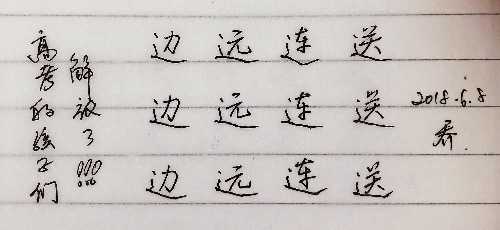 高考的孩子们
解放了!!!
边远连送
边远连送
边远连送
2018.6.8